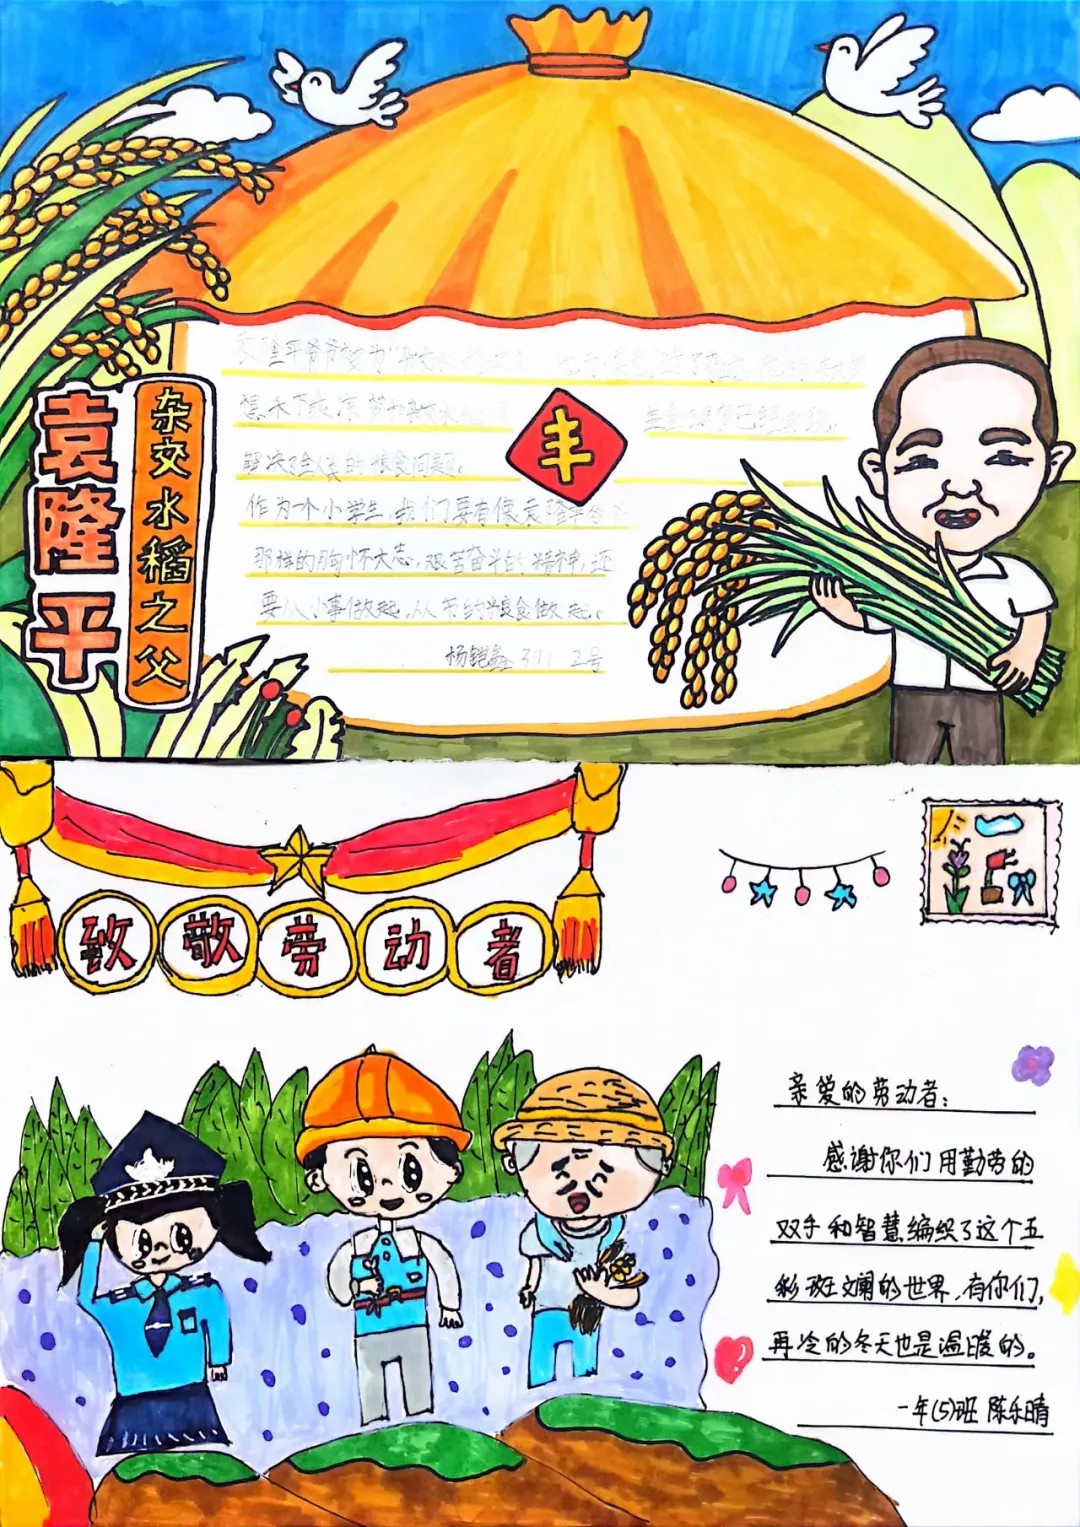 袁隆平
杂交水稻之父
隆平爷爷被为“杂交水
想 禾下乘凉梦和杂交水稻
丰
解决了全人类的粮食问题。
作为一个小学生,我们要有像袁隆平爷
那样的胸怀大志,艰苦奋斗的精神,还
要从小事做起,从节约粮食做起。
2号
致敬劳动者
亲爱的劳动者:
感谢你们用勤劳的
双手和智慧编织了这个五
彩斑斓的世界,有你们,
再冷的冬天也是温暖的。
一年(5)班 陈乐晴